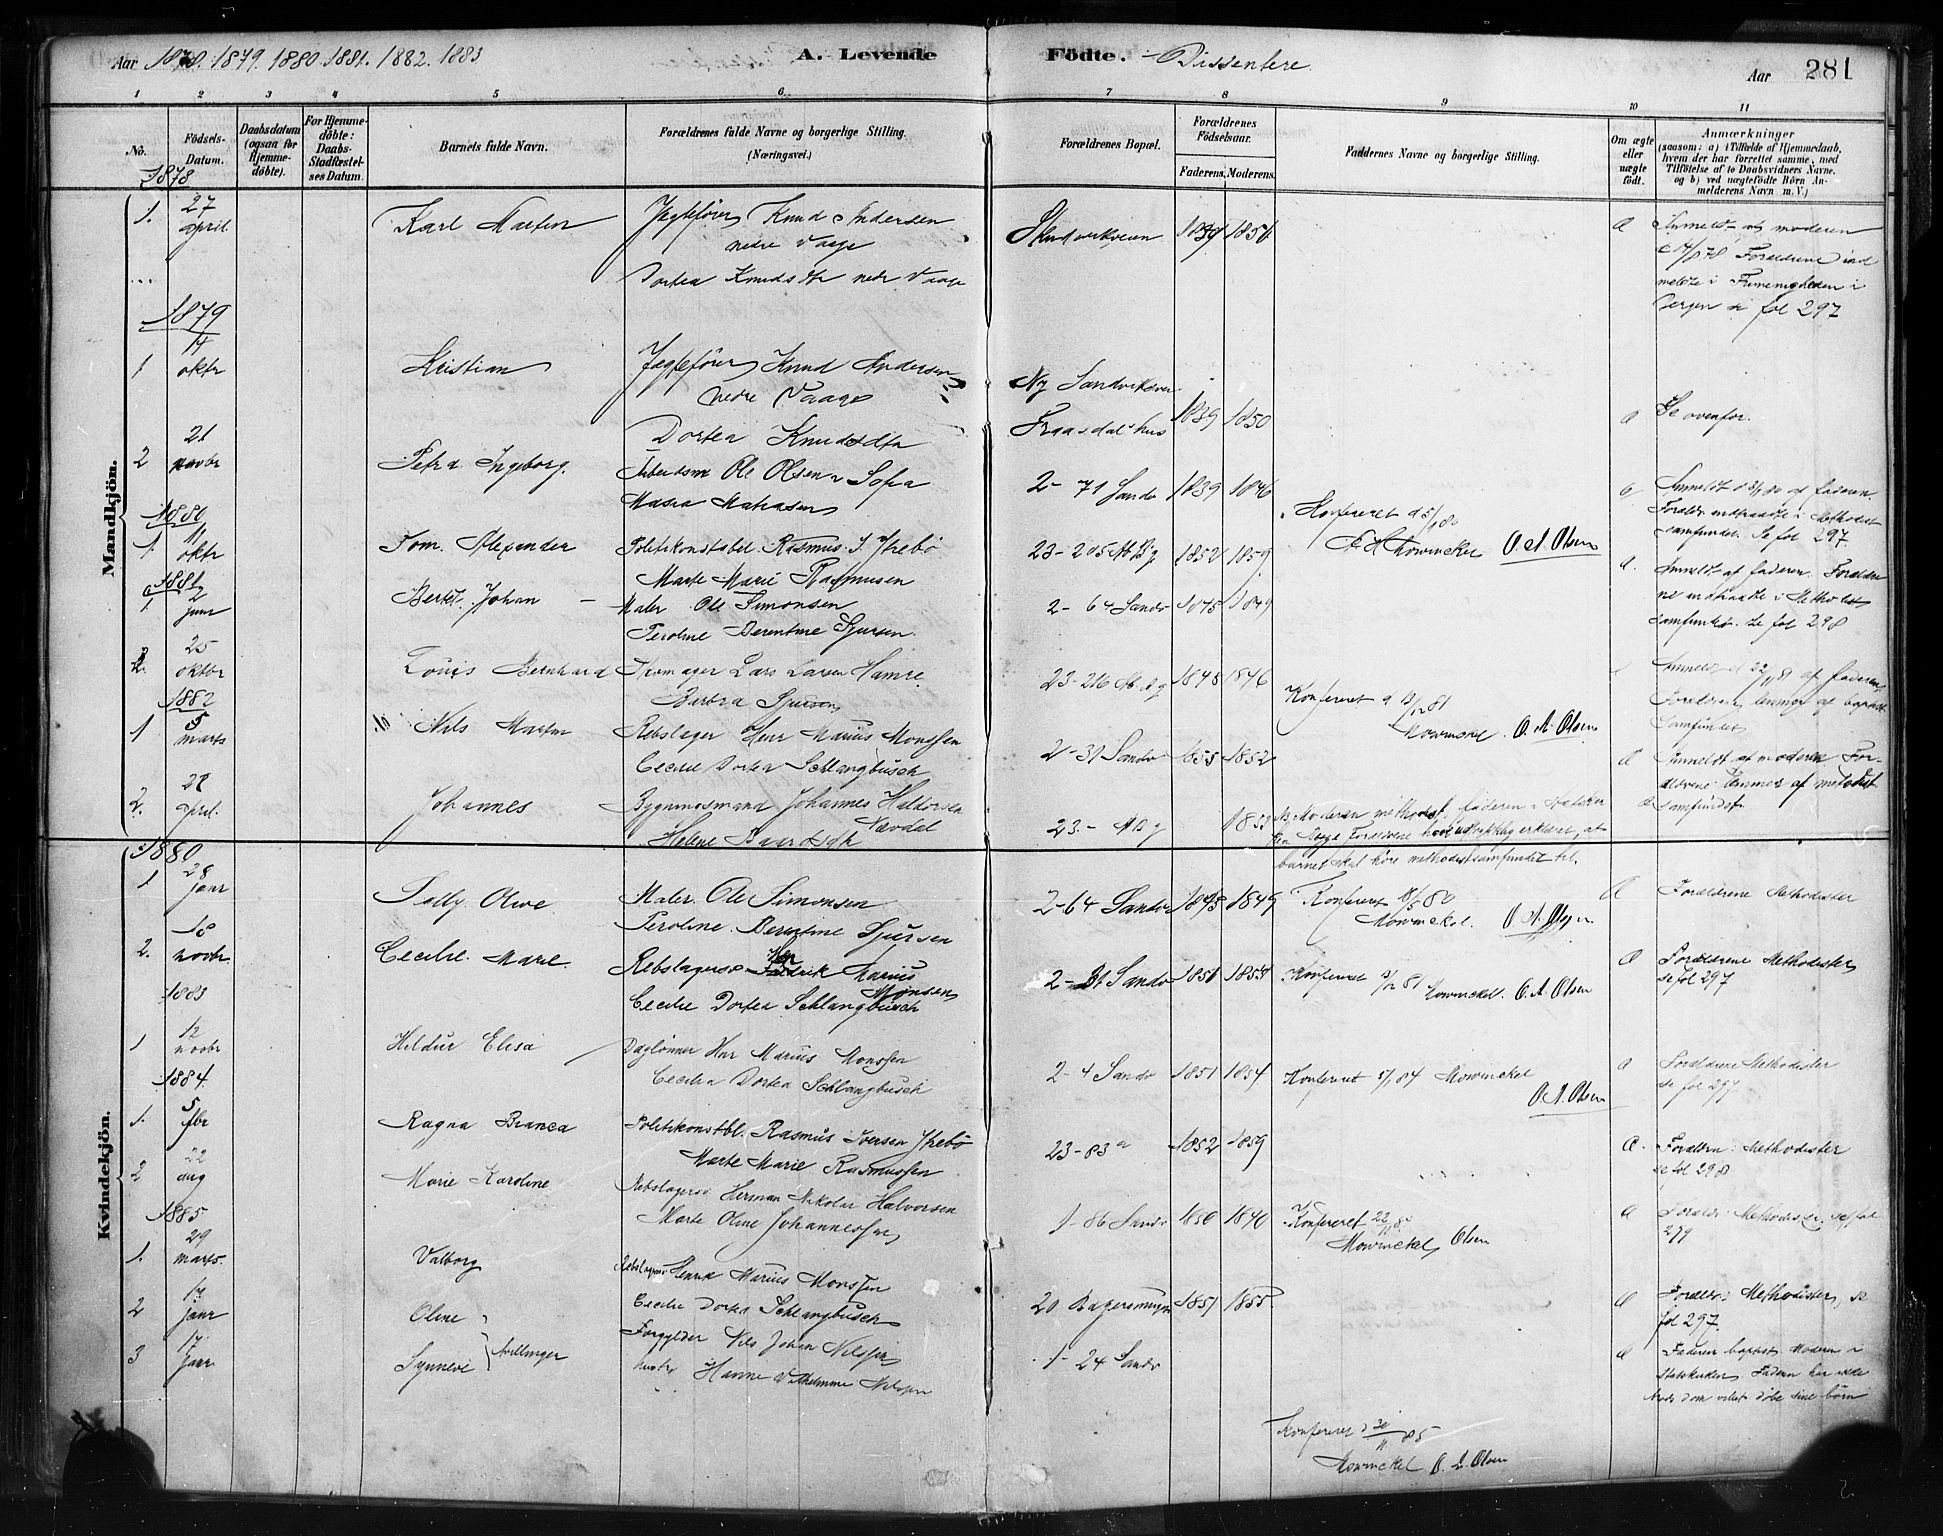 Aar 1878. 1879. 1880. 1881. 1882. 1883
A. Levende Födte. Dissentere.
Aar 281
1 2 3 4 5 6 7 8 9 10 11
No.
Födsels-Datum.
Daabsdatum (ogsaa for Hjemme-döbte).
For Hjemme-döbte: Daabs-Stadfæstelses Datum.
Barnets fulde Navn.
Forældrenes fulde Navne og borgerlige Stilling. (Næringsvei.)
Forældrenes Bopæl.
Forældrenes Födselsaar.
Faderens. Moderens.
Faddernes Navne og borgerlige Stilling.
Om ægte eller uægte födt.
Anmærkninger
(saasom: a) i Tilfælde af Hjemmedaab, hvem der har forrettet samme, med Tilföielse af to Daabsvidners Navne, og b) ved uægtefödte Börn Anmelderens Navn m. V.)
Mandkjön.
1878
1. 27 april Karl Martin Jægtefører Knud Andersen
nedre Vaage
Dortea Knudsdtr nedr Vaage
1850
Anmeldt af moderen
Forældrene ind
meldte i
Bergen se fol 297
1879
1 14 oktr Kristian Jægtefører Knud Andersen
nedre Vaage
Dortea Knudsdtr
Ny Sandviksvei
1839 1850
Se ovenfor.
2 21 novbr Petra Ingeborg. Arbeidsm Ole Olsen Sofia
2- 71 Sandv 1839 1846
Konfereret
O. A. Olsen
Anmeldt af faderen
Forældr indtraadte i Methodist
samfundet. Se fol 297.
1880
1. 11 oktr Tom. Alexander Politikonstabel. Rasmus I. Ytrebö
Marte Marie Rasmusen
23-205 1852 1859
Anmeldt af faderen. Forældre
ne indtraadte i Methodist
samfundet. se fol 298
1881
1 2 juni Bertel. Johan Maler Ole Simonsen
Peroline Berentine Sjursen.
2- 64 Sandv 1845 1849
2. 25 oktbr Louis Bernhard Lars Larsen Hamre.
Barbra Sjursen
23-216 1845 1846
Konfereret
Mowinckel. O. A. Olsen
Anmeldt af faderen.
samfundet
1882
1 5 marts Nils Martin Rebslager Henr Marius Monssen
Cecilie Dortea Schlangbusch
2-31 Sandv 1855 1852
Anmeldt af moderen For-
ældrene lemmer af metodist
samfundet.
2. 28 april. Johannes Bygningsmand Johannes Haldorsen
Nævdal
Helene Baardsdtr
23.- 1853
Moderen methodist, faderen i statskirken
Begge Forældrene have udtrykkelig erklæret, at
barnet skal höre methodistsamfundet til.
Kvindekjön.
1880
1 28 janr Selly Olive Maler. Ole Simonsen
Peroline. Berentine Sjursen
2-64 Sandv 1845 1849
Konfereret
Mowinckel. O. A. Olsen
Forældrene Methodister
2. 18 novbr. Cecilie. Marie. Rebslager Marius
Monsen
Cecilie Dortea Schlangbusch
2- Sandv 1851 1854
Konfereret
Mowinckel. O. A. Olsen
Forældrene Methodister
se fol 297
1883
1 12 novbr Hildur Elisa Daglönner Henr Marius Monssen
Cecilia Dortea Schlangbusch
2-4 Sandv 1851 1854
Konfereret 5/1 84 Mowinckel
O. A. Olsen
Forældrene Methodister
se fol 297
1884.
1. 5 Ragna Bianca Politikonstbl. Rasmus Iversen Ytrebö
Marte Marie Rasmussen
23-83a 1852 1859
Forældrn. Methodister
se fol 298
2 22 aug Marie Karoline Rebslager Herman Nikolai Halvorsen
Marte Oline Johannessen
1-86 Sandv 1850 1840
Konfereret
Mowinckel Olsen
Forældr: Methodister, se fol
299
1885
1. 29 marts. Valborg Rebslager Henrik Marius Monssen
Cecilie Dortea Schlangbusch
20 1851 1855
Forældr: Methodister, se
fol 297.
2 17 janr Oline
3 17 janr Synneve
tvillinger
Forgylder Nils Johan Nilssen
hustr Hanne Vilhelmine Nilssen
1- 24 Sandv
Faderen baptist Moderen i
statskirken Faderen har ikke
döbe sine börn
Konfereret 30/11 85
Mowinckel O. A. Olsen